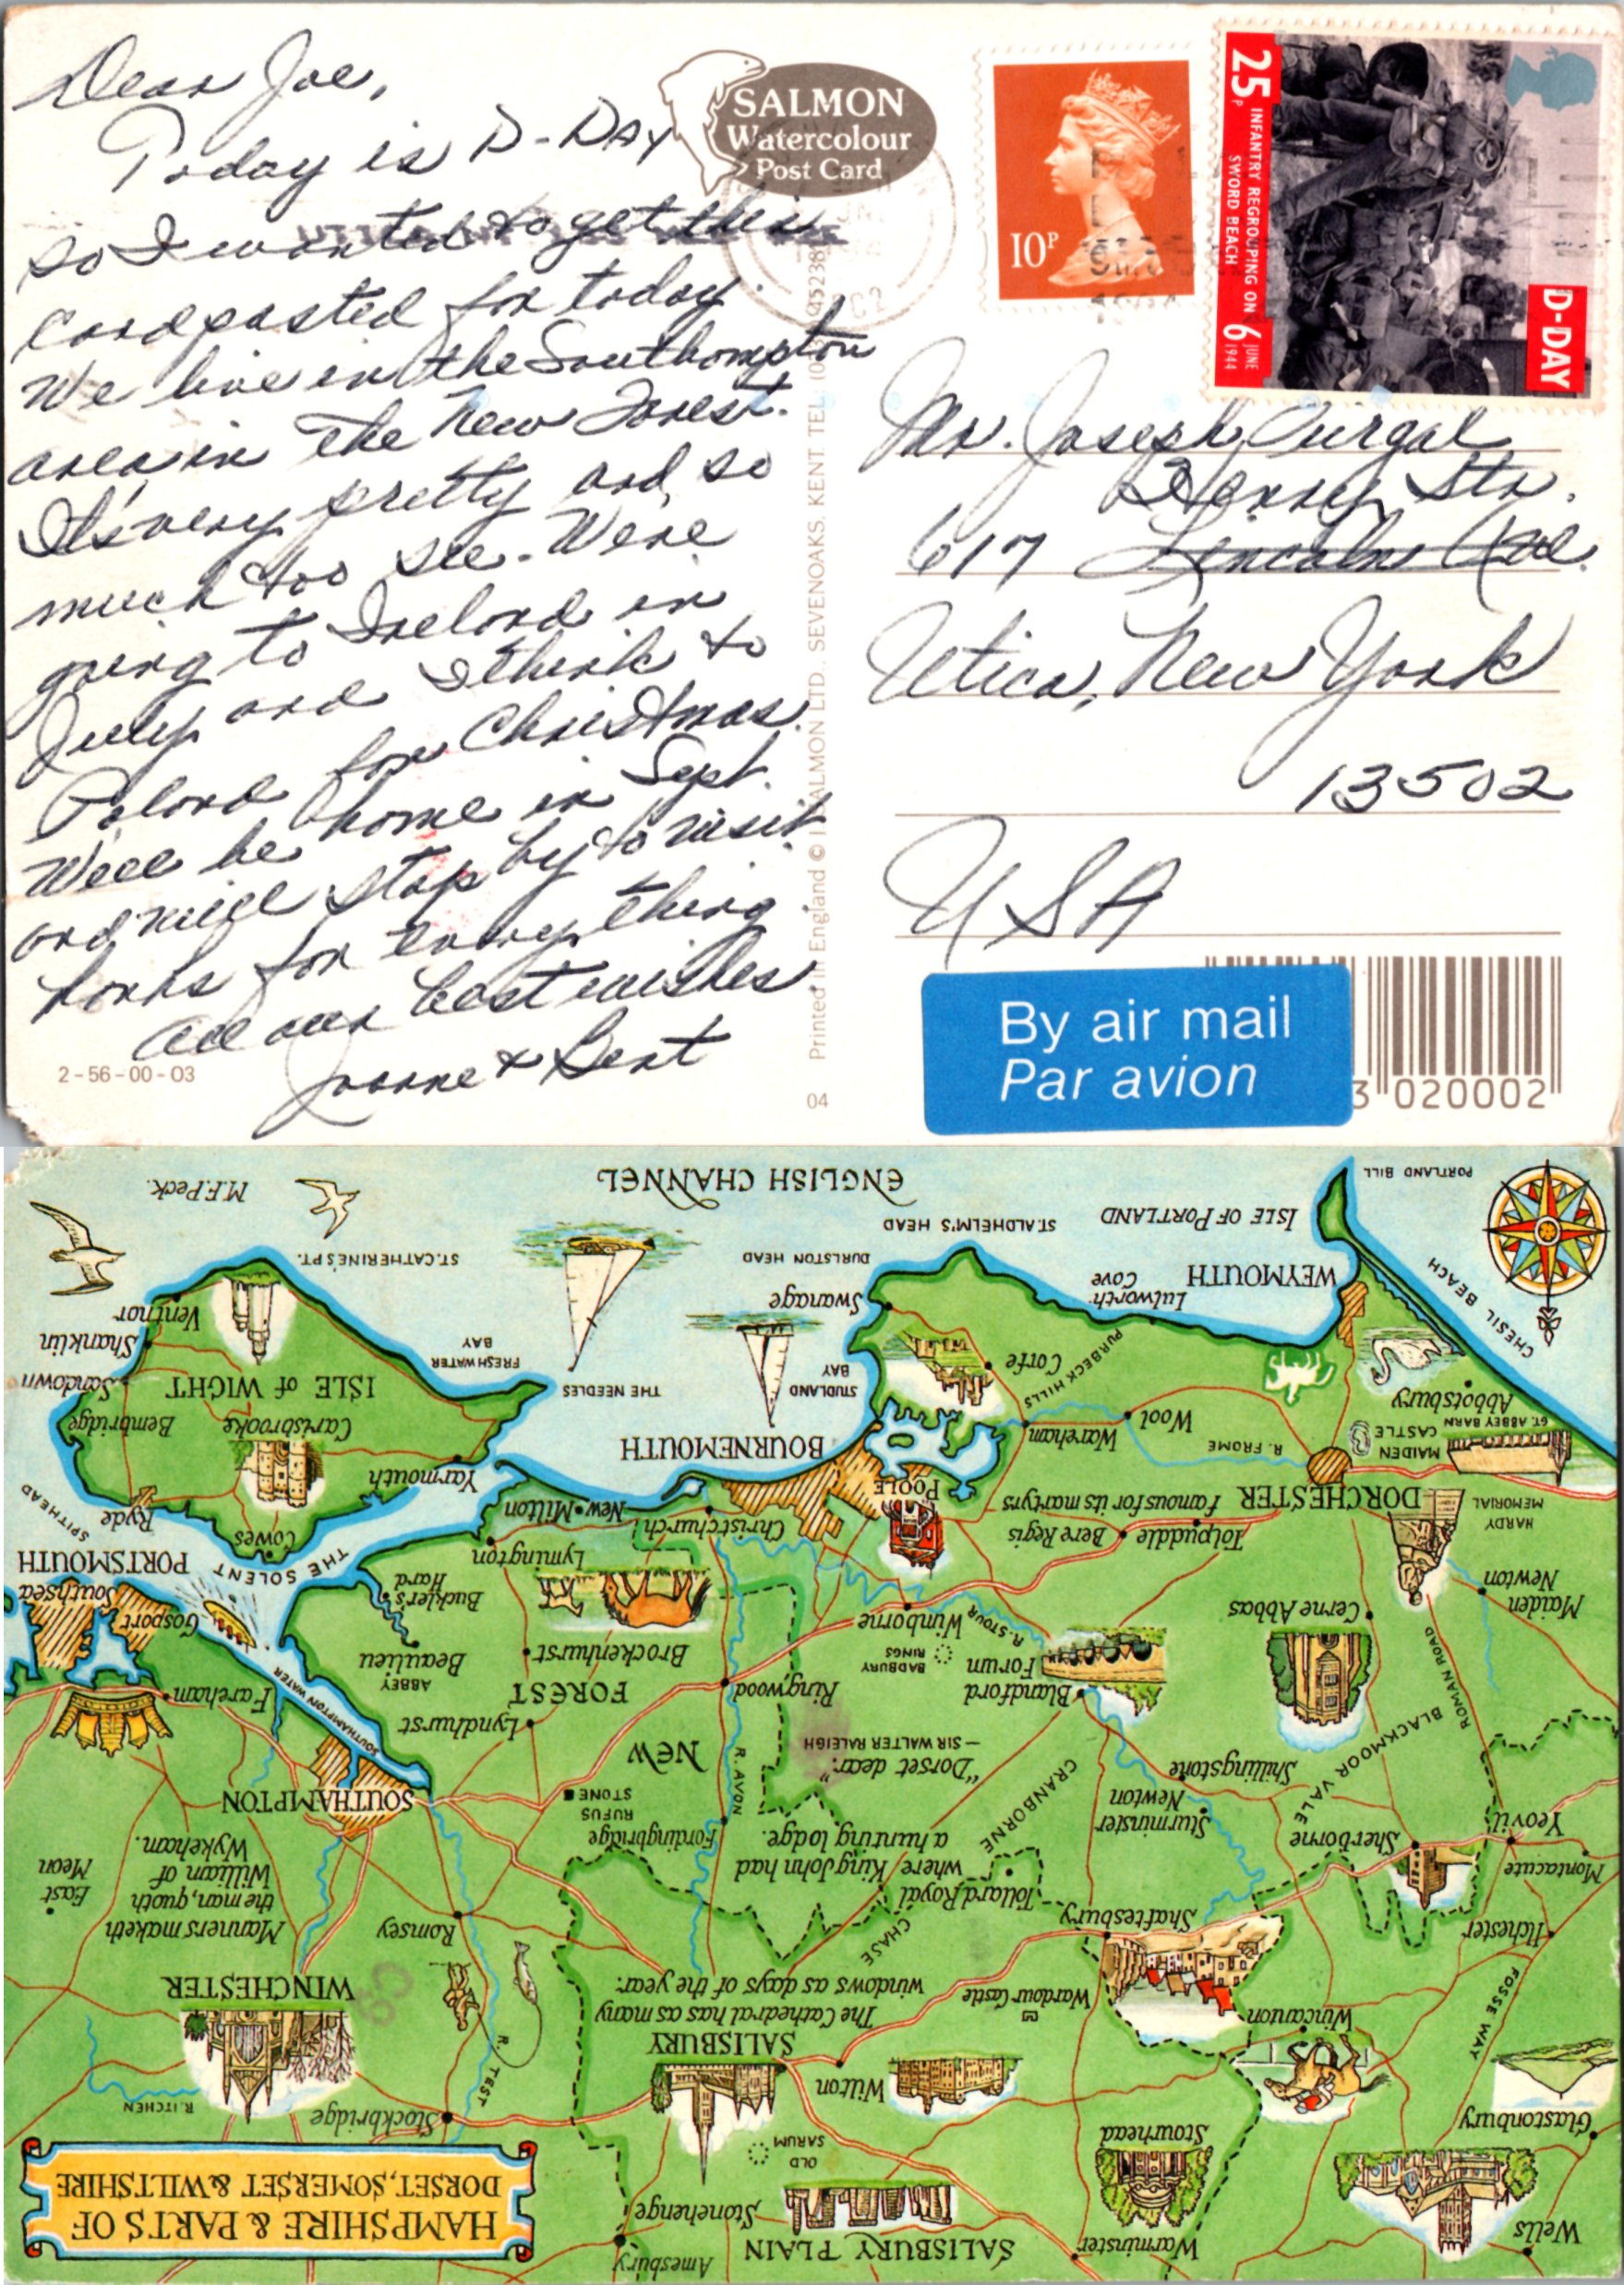 Dear Joe,
Today is D-DAY
so I wanted to get this
card posted for today.
We live in the Southampton
area in the New Forest.
It's very pretty and so
much too see. We're
going to Ireland in
July and I think to
Poland for Christmas.
Well be home in Sept.
and will stop by to visit.
for everything.
All our best wishes
Joanne & Bent
2-56-00-03
SALMON
Watercolour
Post Card
Printed in England © J SALMON LTD., SEVENOAKS, KENT. TEL.
04
10P
25P
INFANTRY REGROUPING ON
SWORD BEACH
6 JUNE
1944
D-DAY
Mr. Joseph
Henry Str.
617 Lincoln Ave.
Utica, New York
13502
USA
By air mail
Par avion
3 020002
HAMPSHIRE & PARTS OF
DORSET, SOMERSET & WILTSHIRE
Amesbury
SALISBURY PLAIN
Warminster
Wells
Stonehenge
OLD
SARUM
Stourhead
Glastonbury
Stockbridge
R. ITCHEN
R. TEST
Wilton
SALISBURY
The Cathedral has as many
windows as days of the year.
Wardour Castle
Wincanton
FOSSE WAY
WINCHESTER
Manners maketh
the man, quoth
William of
Wykeham.
East
Meon
Romsey
CRANBORNE
CHASE
Tollard Royal
where King John had
a hunting lodge.
Shaftesbury
Ilchester
Sherborne
Montacute
Yeovil
SOUTHAMPTON
Fordingbridge
RUFUS
STONE
Sturminster
Newton
Shillingstone
BLACKMOOR VALE
R. AVON
"Dorset dear."
— SIR WALTER RALEIGH
NEW
FOREST
Lyndhurst
Ringwood
Blandford
Forum
ROMAN ROAD
Fareham
SOUTHAMPTON WATER
Beaulieu
ABBEY
Brockenhurst
BADBURY
RINGS
Wimborne
R. STOUR
Cerne Abbas
Maiden
Newton
Gosport
Southsea
PORTSMOUTH
Buckler's
Hard
Lymington
THE SOLENT
SPITHEAD
Christchurch
New Milton
POOLE
Bere Regis
Tolpuddle
Famous for its martyrs
DORCHESTER
HARDY
MEMORIAL
Ryde
Cowes
Yarmouth
BOURNEMOUTH
Wareham
Wool
R. FROME
MAIDEN
CASTLE
GT. ABBEY BARN
Abbotsbury
Bembridge
Carisbrooke
ISLE OF WIGHT
Sandown
Shanklin
Ventnor
THE NEEDLES
FRESHWATER
BAY
STUDLAND
BAY
Corfe
PURBECK HILLS
Swanage
Lulworth
Cove
WEYMOUTH
CHESIL BEACH
ST. CATHERINE'S PT.
DURLSTON HEAD
ST. ALDHELM'S HEAD
ISLE OF PORTLAND
PORTLAND BILL
ENGLISH CHANNEL
M.F. Peck.